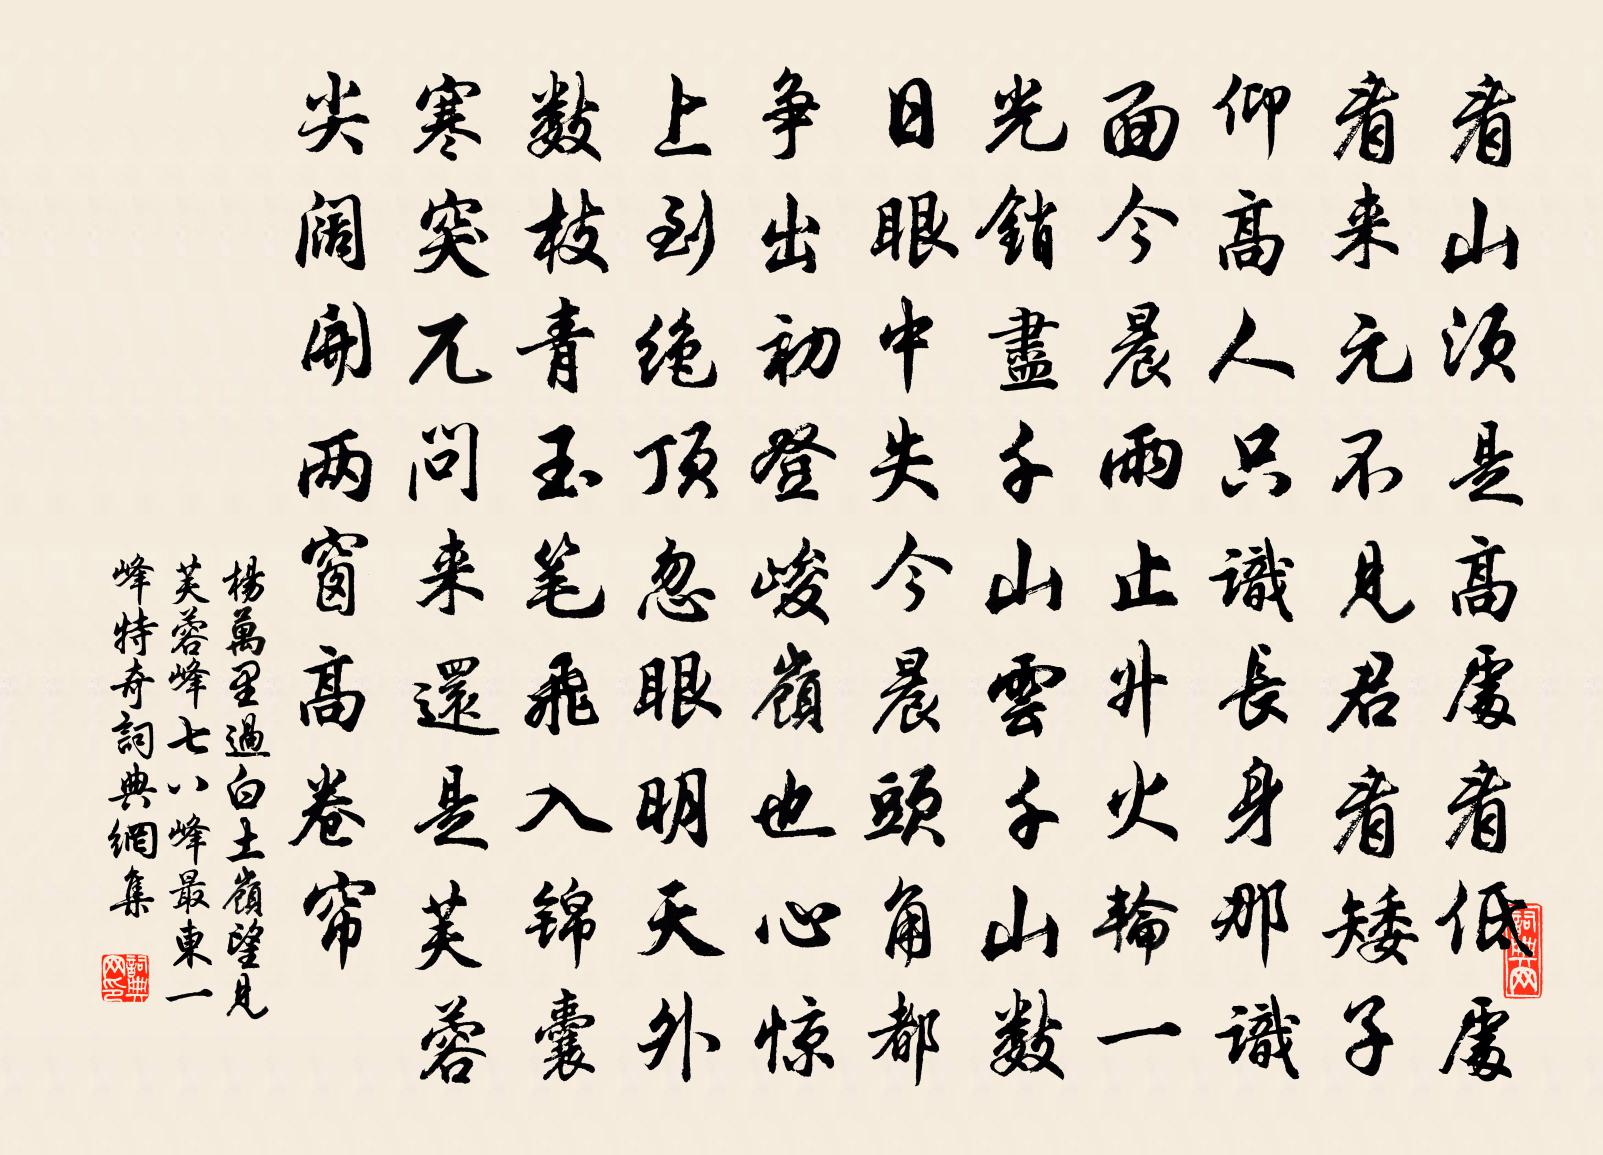 看山須是高處看低處
看来元不見君看矮子
仰高人只識長身那識
面今晨雨止升火輪一
光銷盡千山雲千山數
日眼中失今晨頭角都
争出初登峻嶺也心惊
上到绝顶忽眼明天外
數枝青玉笔飛入锦囊
寒突兀問来還是芙蓉
尖阔開两窗高卷帘
楊萬里過白土嶺望見
芙蓉峰七八峰最東一
峰特奇詞典網集
詞典网
詞典网印